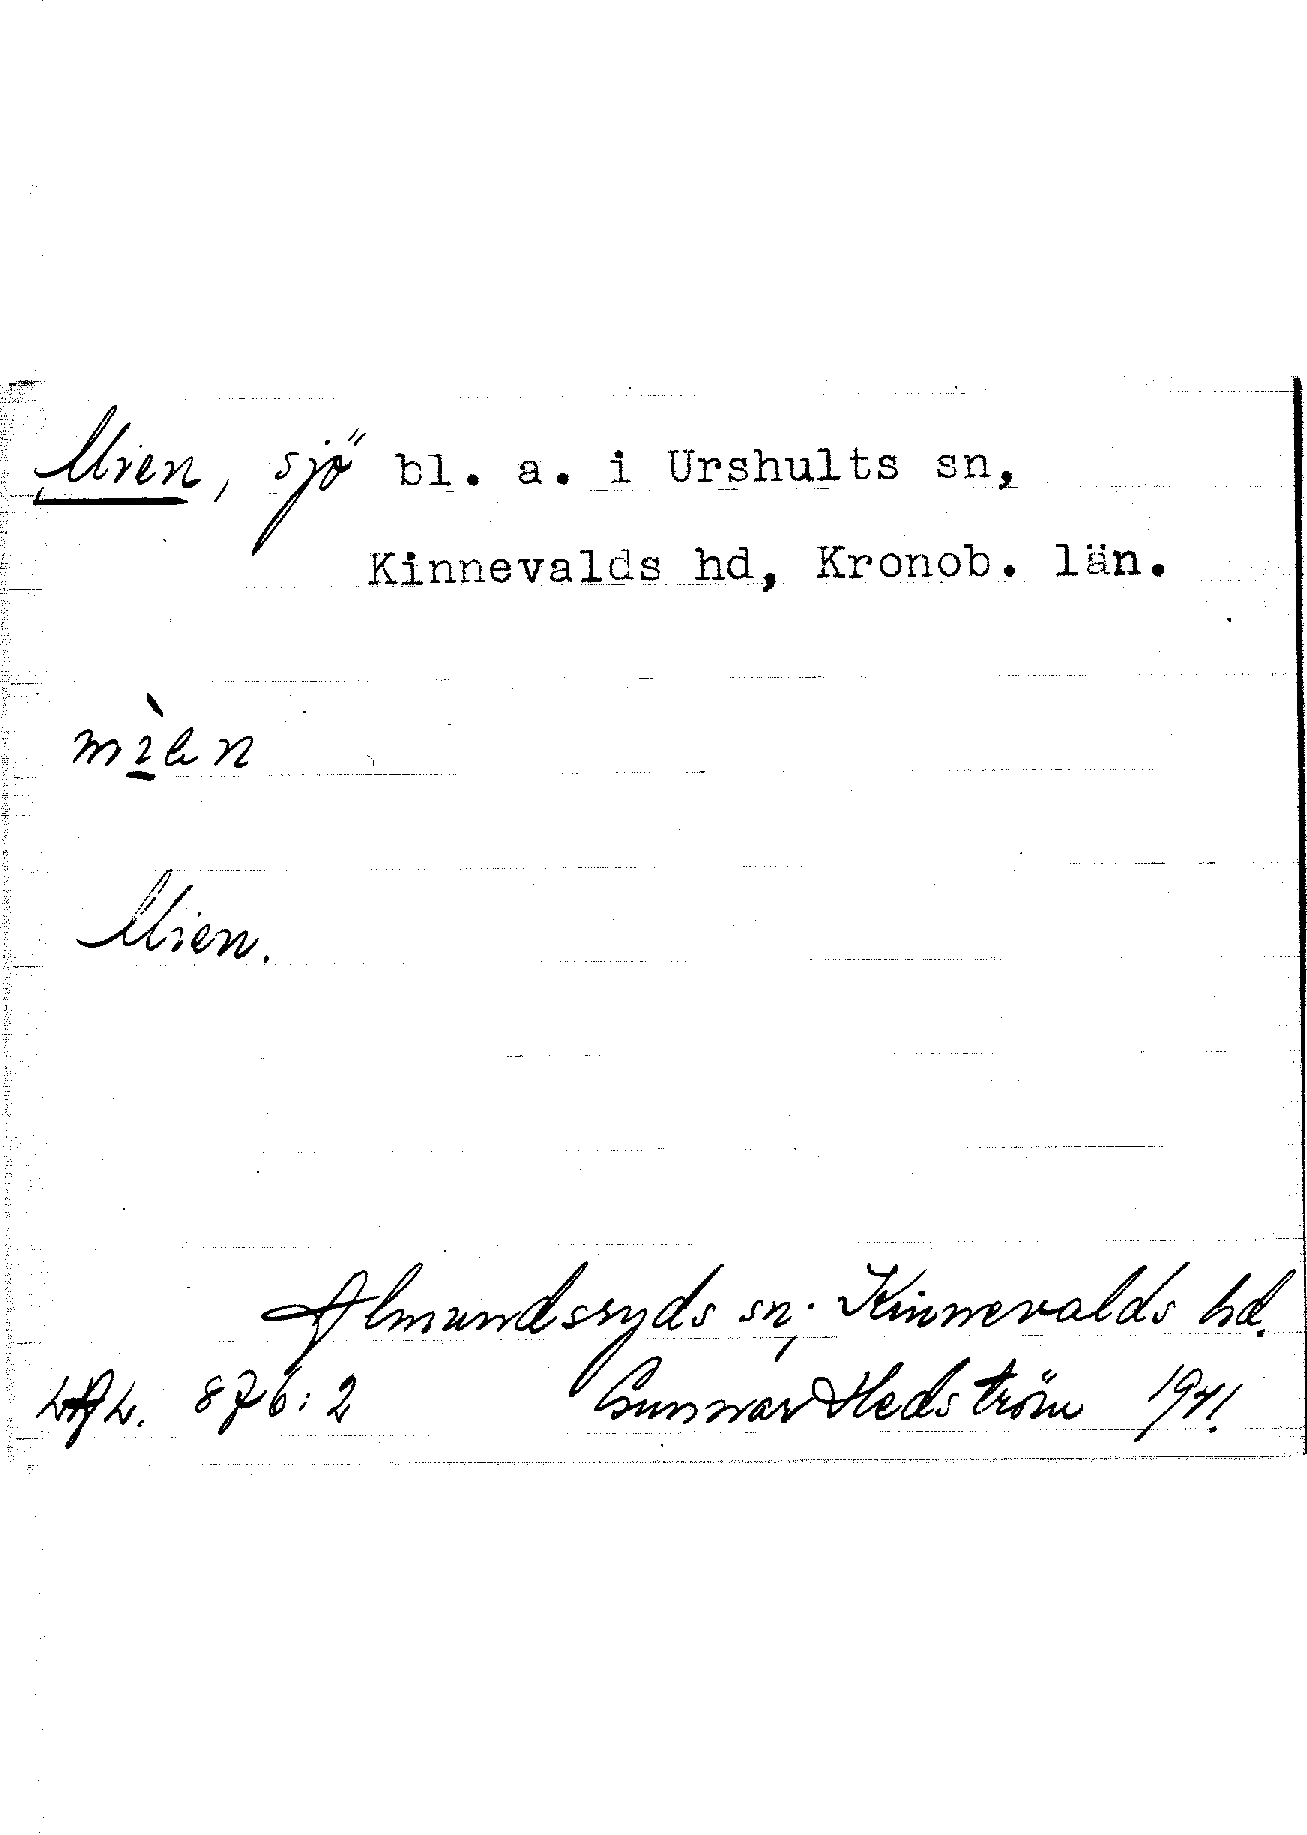 Mien, sjö bl. a. i Urshults sn,
Kinnevalds hd, Kronob. län.
mìen
Mien.
Almundsryds sn; Kinnevalds hd.
876:2 Gunnar Hedström 1941.